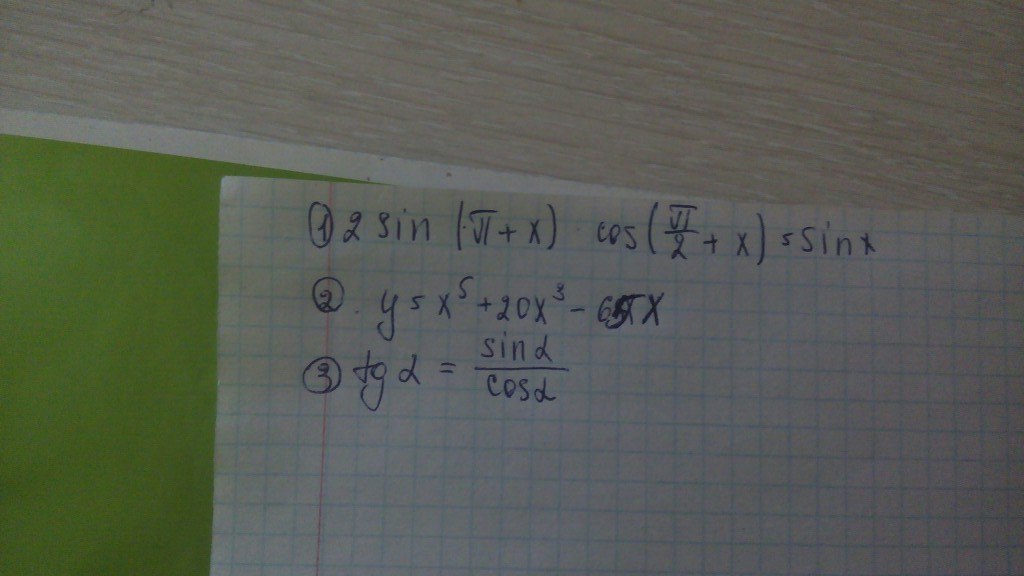 ① 2 sin (π + x) · cos(π/2 + x) = sin x
② . y = x⁵ + 20x³ – 65x
③ tg α = sin α / cos α